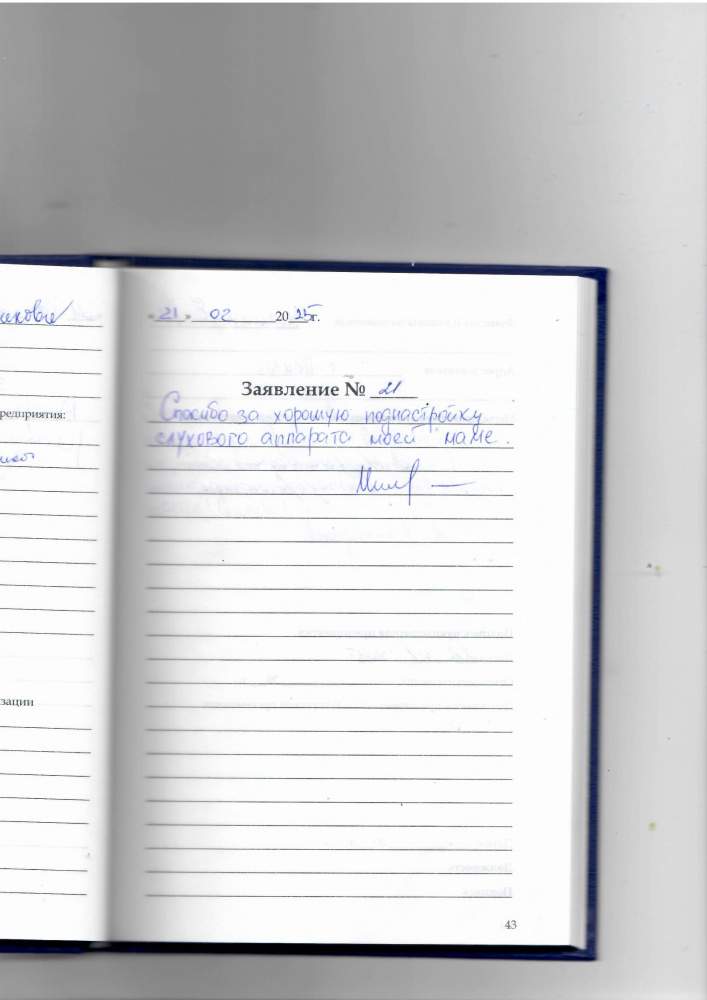 «21» 02 2025г.
Заявление № 21
Спасибо за хорошую поднастройку
слухового аппарата моей маме.
редприятия:
зации
43